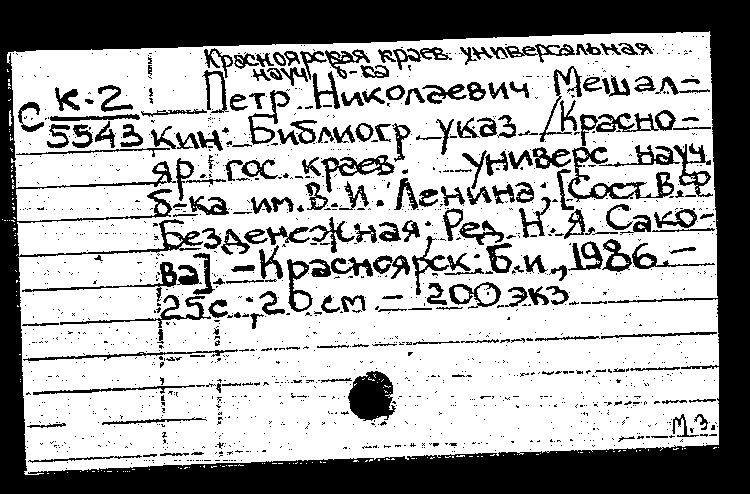 Красноярская краев. универсальная
науч. б-ка
С К-2
5543
Петр Николаевич Мешал-
кин: Библиогр. указ. / Красно-
яр. гос. краев. универс. науч.
б-ка им. В. И. Ленина; [Сост. В. Ф.
Безденежная; Ред. Н. Я. Сако-
ва]. – Красноярск: Б. и., 1986. –
25 с.; 20 см. – 200 экз
М. З.